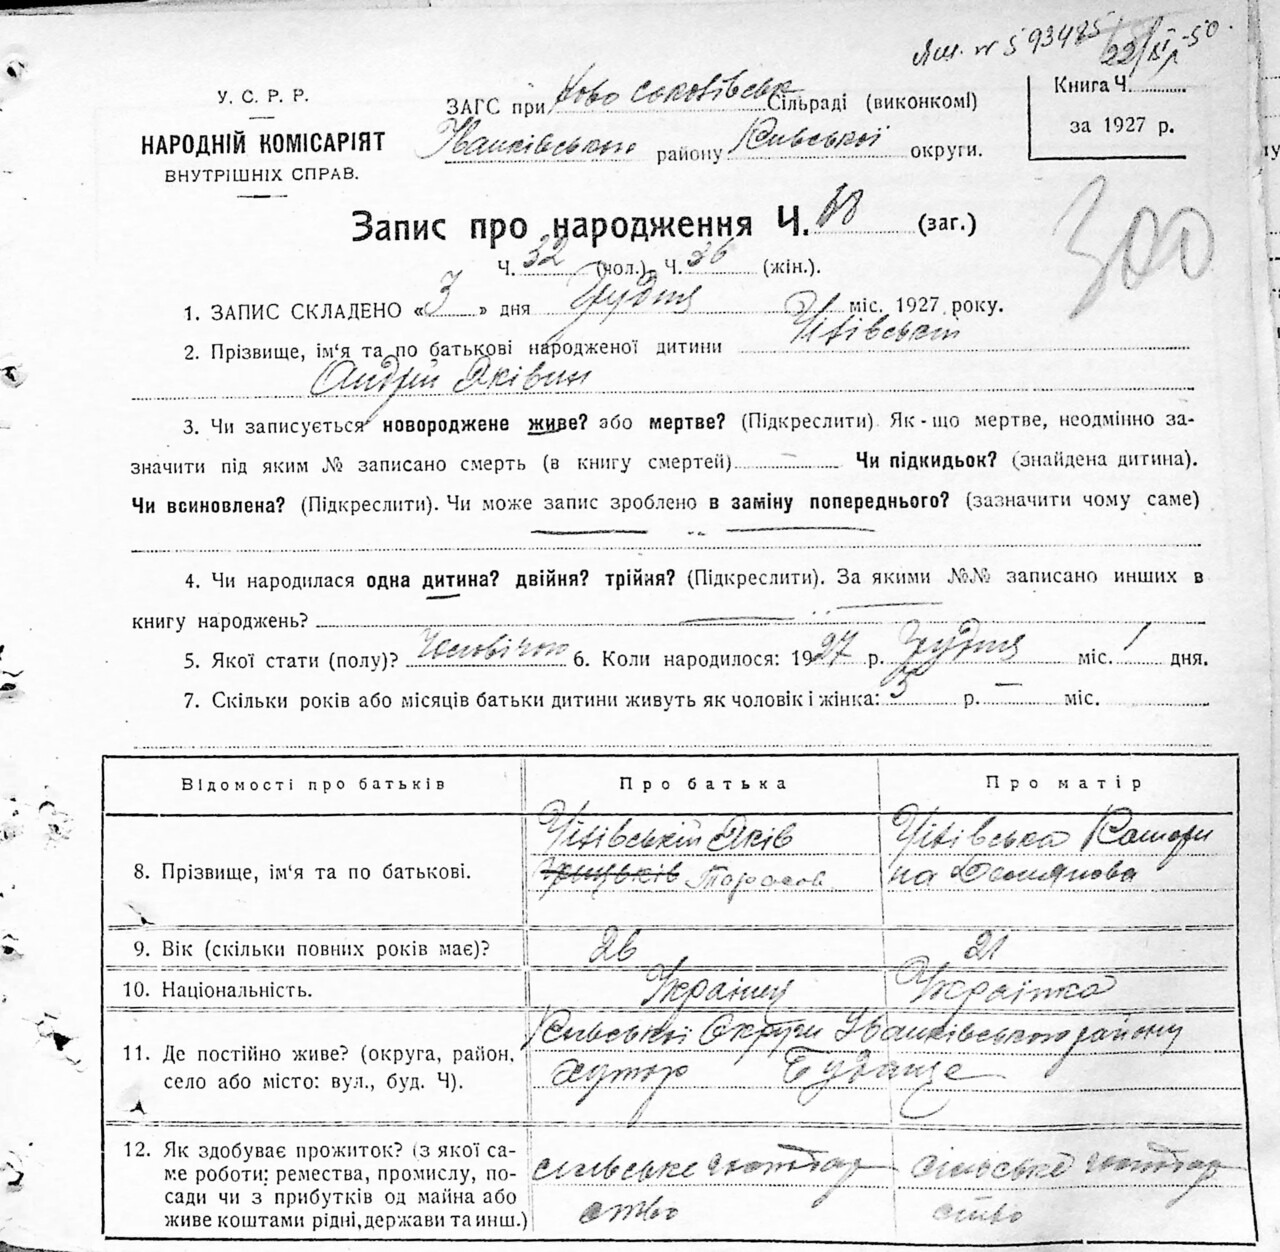 № 593485 22/XI-50.
У. С. Р. Р.
НАРОДНІЙ КОМІСАРІЯТ
ВНУТРІШНІХ СПРАВ.
ЗАГС при Ново Соколівськ Сільраді (виконкомі)
Іванківського району Київської округи.
Книга Ч.
за 1927 р.
300
Запис про народження Ч. 68 (заг.)
Ч. 32 (чол.) Ч. 36 (жін.).
1. ЗАПИС СКЛАДЕНО «3» дня Грудня міс. 1927 року.
2. Прізвище, ім'я та по батькові народженої дитини
Андрій Яківич
3. Чи записується новороджене живе? або мертве? (Підкреслити) Як-що мертве, неодмінно за-
значити під яким № записано смерть (в книгу смертей) — Чи підкидьок? (знайдена дитина).
Чи всиновлена? (Підкреслити). Чи може запис зроблено в заміну попереднього? (зазначити чому саме)
4. Чи народилася одна дитина? двійня? трійня? (Підкреслити). За якими №№ записано инших в
книгу народжень?
5. Якої стати (полу)? Чоловічої 6. Коли народилося: 1927 р. Грудня міс. 1 дня.
7. Скільки років або місяців батьки дитини живуть як чоловік і жінка: 5 р. — міс.
Відомості про батьків Про батька Про матір
8. Прізвище, ім'я та по батькові. Яків Тарасов
Демянова
9. Вік (скільки повних років має)? 26 21
10. Національність. Українец Українка
11. Де постійно живе? (округа, район, село або місто: вул., буд. Ч). Київської Округи Іванківського району
хутор
12. Як здобуває прожиток? (з якої са-
ме роботи: ремества, промислу, по-
сади чи з прибутків од майна або
живе коштами рідні, держави та инш.)
сільське господар
ство
сільське господар
ство